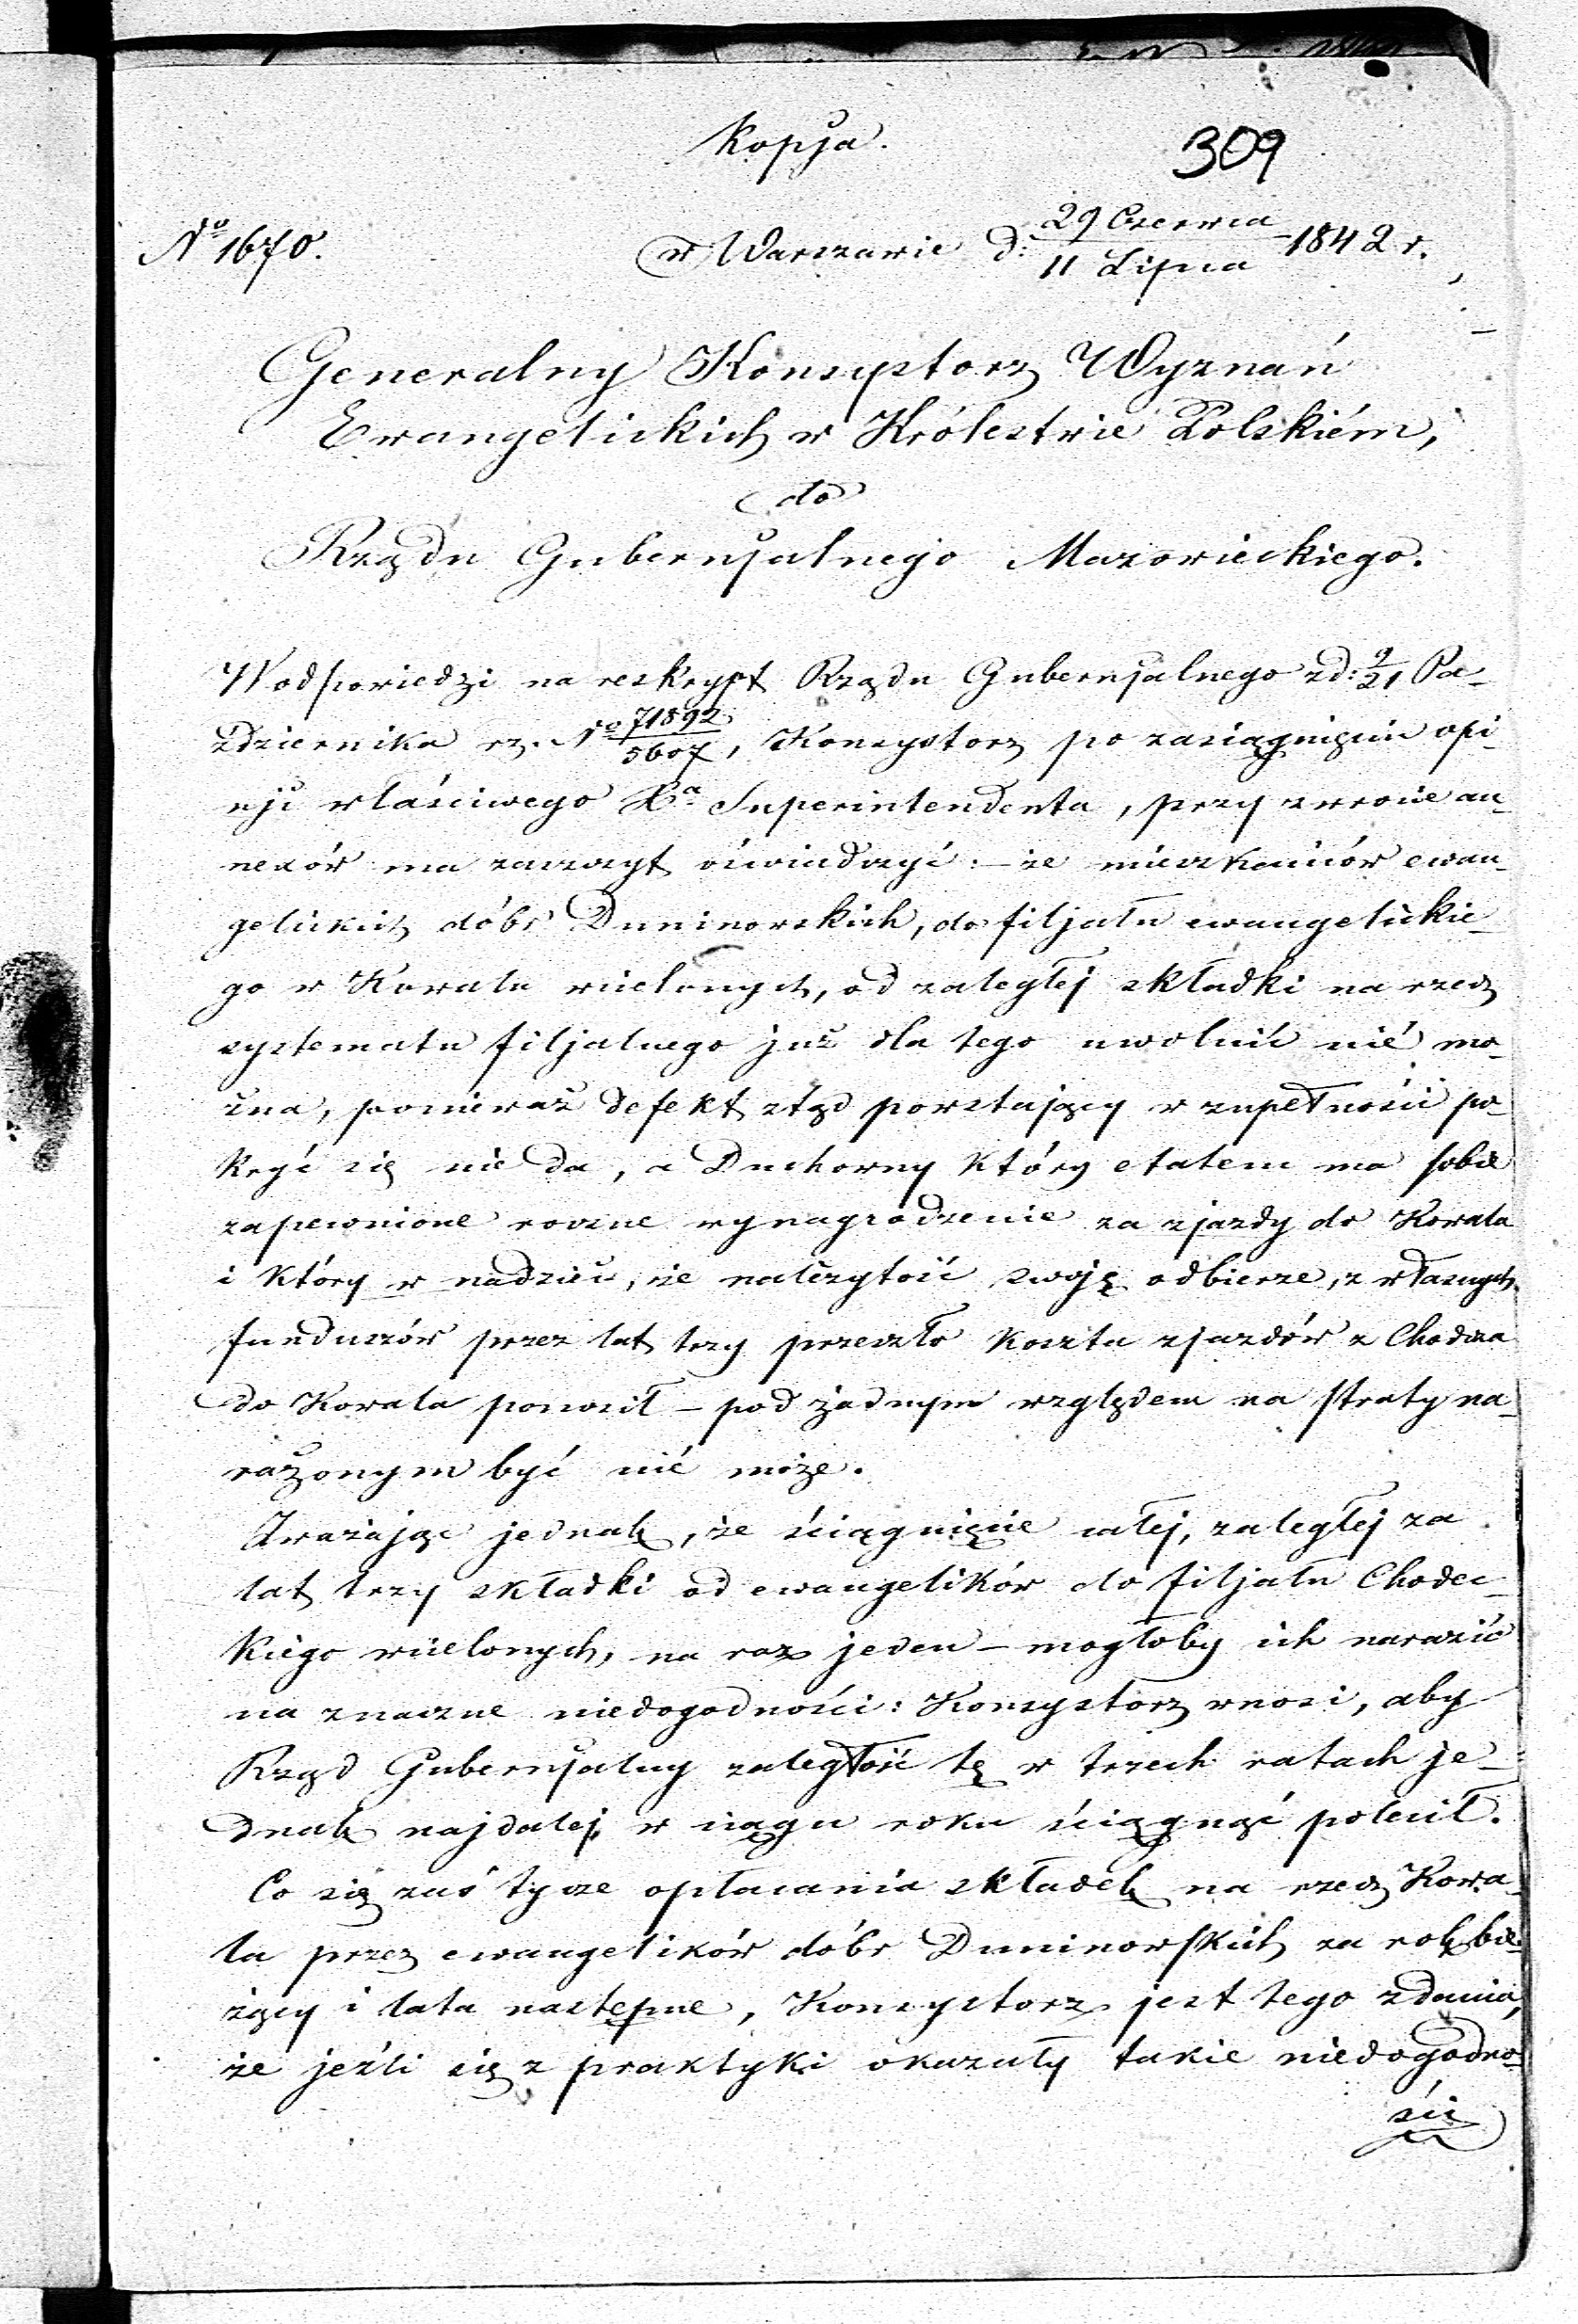 Kopja.
309
No 1670.
w Warszawie d: 29 Czerwca / 11 Lipca 1842 r.
Generalny Konsystorz Wyznań
Ewangelickich w Królestwie Polskiém,
do
Rządu Gubernjalnego Mazowieckiego.
W odpowiedzi na reskrypt Rządu Gubernjalnego z d: 9/21 Pa-
ździernika rz. No 71892/5607, Konsystorz po zasiągnięciu opi-
nji właściwego Xa Superintendenta, przy zwrocie an-
nexów ma zaszczyt oświadczyć: – że mieszkańców ewan-
gelickich dóbr Duninowskich, do filjału ewangelickie-
go w Kowalu wcielonych, od zaległej składki na rzecz
systematu filjalnego już dla tego uwolnić nié mo-
żna, ponieważ defekt ztąd powstający w zupełności po-
kryć się nie da, a Duchowny który etatem ma sobie
zapewnione roczne wynagrodzenie za zjazdy do Kowala
i który w nadziei, że należytość swoję odbierze, z własnych
funduszów przez lat trzy przeszło koszta zjazdów z Chodcza
do Kowala ponosił – pod żadnym względem na straty na-
rażonym być nié może.
Zważając jednak, że ściągnięcie całej, zaległej za
lat trzy składki od ewangelików do filjału Chodec-
kiego wcielonych, na raz jeden – mogłoby ich narazić
na znaczne niedogodności: Konsystorz wnosi, aby
Rząd Gubernjalny zaległość tę w trzech ratach je-
dnak najdalej w ciągu roku ściągnąć polecił.
Co się zaś tycze opłacania składek na rzecz Kowa-
la przez ewangelików dóbr Duninowskich za rok bie-
żący i lata następne, Konsystorz jest tego zdania,
że jeźli się z praktyki okazały takie niedogodno-
ści